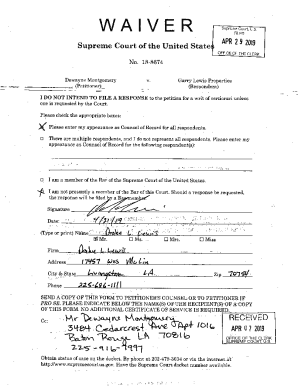 WAIVER
Supreme Court, U.S.
FILED
APR 29 2019
OFFICE OF THE CLERK
Supreme Court of the United States
No. 18-8674
Dewayne Montgomery v. Garry Lewis Properties
(Petitioner) (Respondent)
I DO NOT INTEND TO FILE A RESPONSE to the petition for a writ of certiorari unless
one is requested by the Court.
Please check the appropriate boxes:
Please enter my appearance as Counsel of Record for all respondents.
There are multiple respondents, and I do not represent all respondents. Please enter my
appearance as Counsel of Record for the following respondent(s):
I am a member of the Bar of the Supreme Court of the United States.
I am not presently a member of the Bar of this Court. Should a response be requested,
the response will be filed by a Bar member.
Signature
Date:
(Type or print) Name Drake L. Lewis
Mr. Ms. Mrs. Miss
Firm Drake L. Lewis
Address 17457
City & State Livingston LA Zip 70754
Phone 225-686-1111
SEND A COPY OF THIS FORM TO PETITIONER'S COUNSEL OR TO PETITIONER IF
PRO SE. PLEASE INDICATE BELOW THE NAME(S) OF THE RECIPIENT(S) OF A COPY
OF THIS FORM. NO ADDITIONAL CERTIFICATE OF SERVICE IS REQUIRED.
Cc: Mr Dewayne Montgomery
3484 Cedarcrest Ave Apt 1016
Baton Rouge LA 70816
225-916-9997
RECEIVED
APR 2019
OFFICE OF THE CLERK
SUPREME COURT, U.S.
Obtain status of case on the docket. By phone at 202-479-3034 or via the internet at
http://www.supremecourt.gov. Have the Supreme Court docket number available.